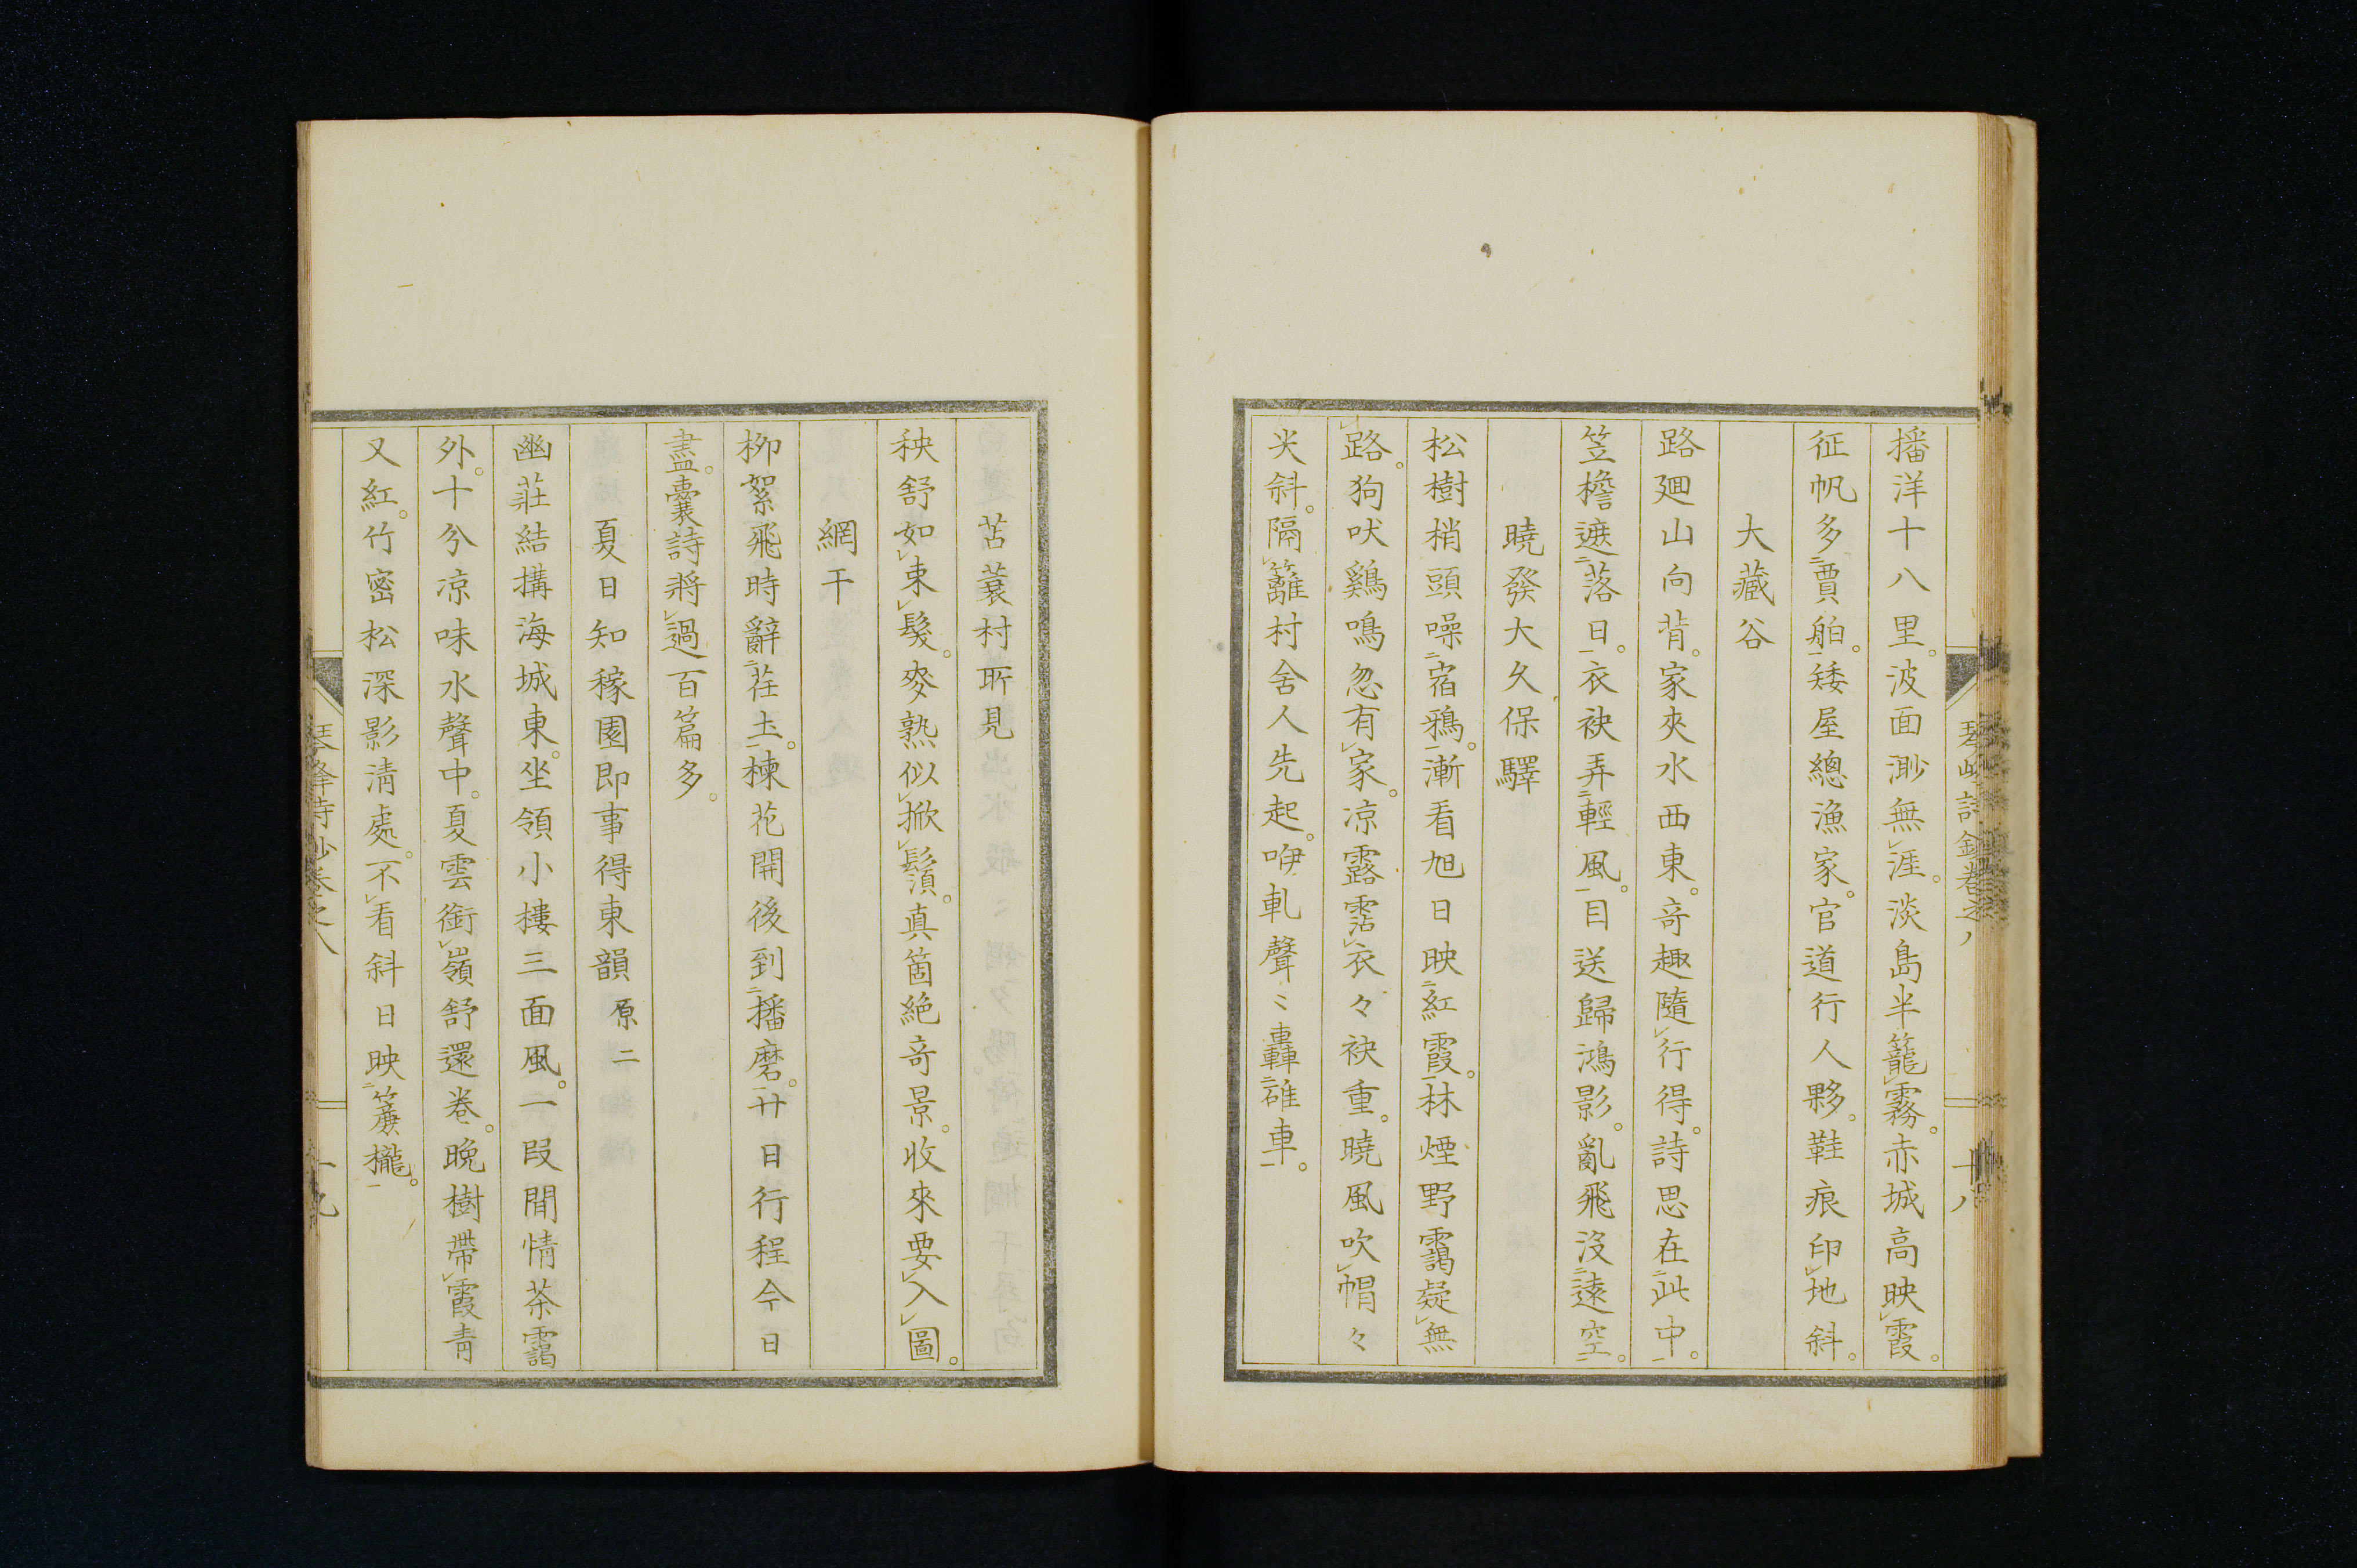 播洋十八里。波面渺無涯。淡島半籠霧。赤城高映霞。
征帆多賈舶。矮屋總漁家。官道行人夥。鞋痕印地斜。
大藏谷
路廻山向背。家夾水西東。奇趣隨行得。詩思在此中。
笠檐遮落日。衣袂弄輕風。目送歸鴻影。亂飛沒遠空。
曉發大久保驛
松樹梢頭噪宿鴉。漸看旭日映紅霞。林煙野靄疑無
路。狗吠鷄鳴忽有家。凉露霑衣々袂重。曉風吹帽々
尖斜。隔籬村舍人先起。咿軋聲〻轟碓車。
苫蓑村所見
秧舒如束髮。麥熟似掀鬚。真箇絶奇景。收來要入圖。
網干
柳絮飛時辭荏土。楝花開後到播磨。廿日行程今日
盡。囊詩將過百篇多。
夏日知稼園即事得東韻 原二
幽莊結搆海城東。坐領小樓三面風。一段閒情茶靄
外。十分凉味水聲中。夏雲銜嶺舒還卷。晩樹帶霞青
又紅。竹密松深影清處。不看斜日映簾櫳。
十九